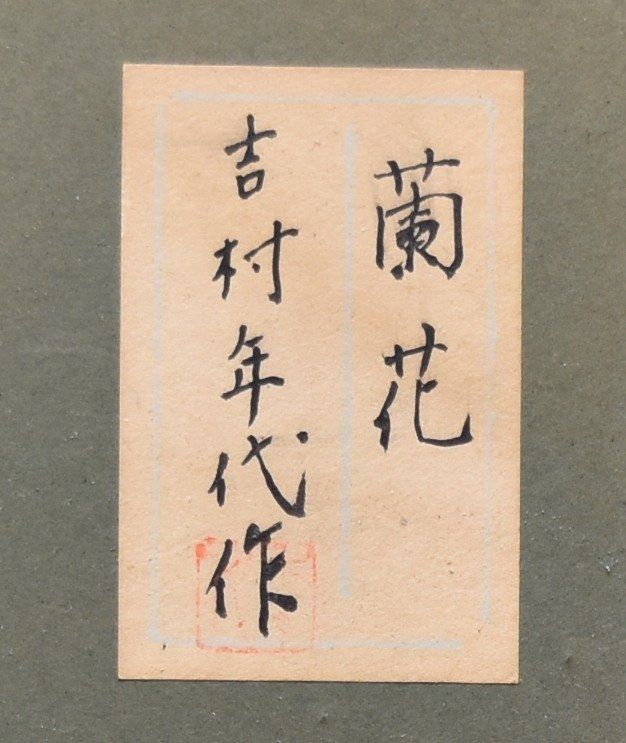 蘭花
吉村年代作